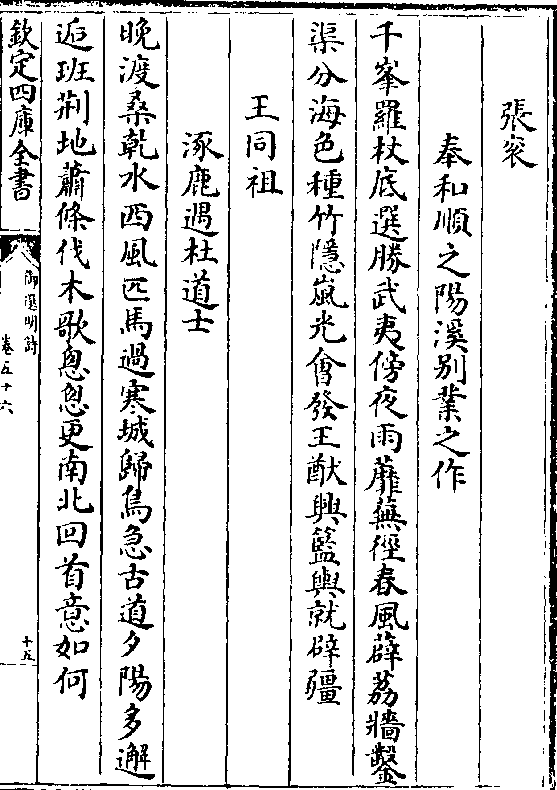 張衮
奉和順之陽溪别業之作
千峯羅杖底選勝武夷傍夜雨蘼蕪徑春風薜荔牆鑿
渠分海色種竹隱嵐光會發王猷興籃輿就辟疆
王同祖
涿鹿遇杜道士
晚渡桑乾水西風匹馬過寒城歸鳥急古道夕陽多邂
逅班荆地蕭條伐木歌悤悤更南北回首意如何
欽定四庫全書
御選明詩
卷五十六
十五